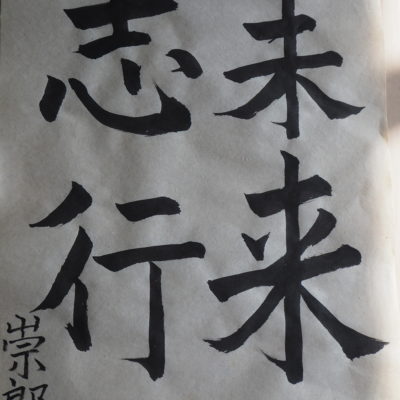 未来
志行
崇郎